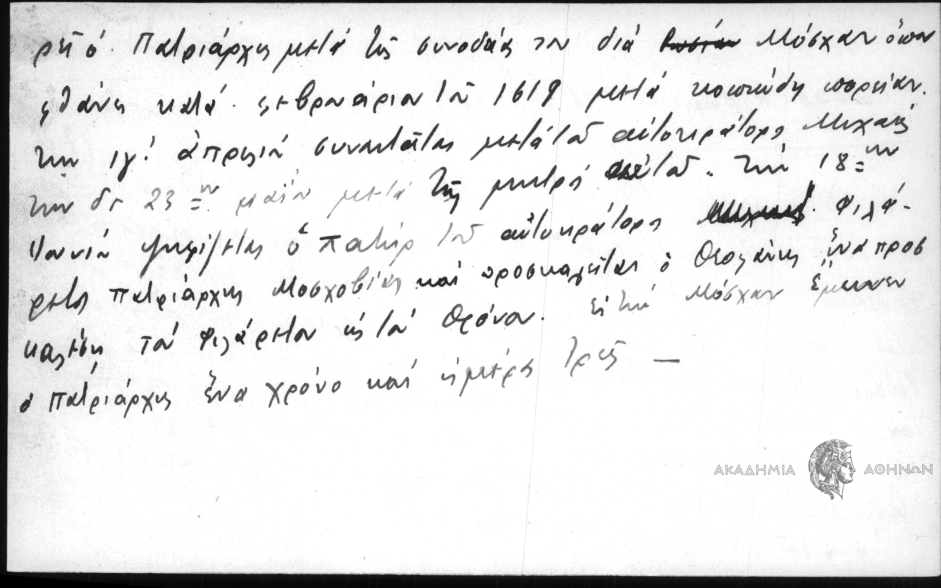 ρεῖ ὁ Πατριάρχης μετά τῆς συνοδείας του διά Μόσχαν ὅπου
φθάνει κατά φεβρουάριον τοῦ 1619 μετά κοπιώδη πορείαν.
την ιγ' ἀπριλίου συναντᾶται μετά τοῦ αὐτοκράτορος Μιχαήλ
την δε 23ην μαΐου μετά τῆς μητρός αὐτοῦ. την 18ην
Ἰουνίου ψηφίζεται ὁ πατήρ τοῦ αὐτοκράτορος Φιλά-
ρετος πατριάρχης Μοσχοβίας καί προσκαλεῖται ὁ Θεοφάνης ἵνα προσ
καλέσῃ τόν Φιλάρετον εἰς τόν θρόνον. Εἰς τήν Μόσχαν ἔμεινεν
ὁ πατριάρχης ἕνα χρόνο καί ἡμέρες τρεῖς —
ΑΚΑΔΗΜΙΑ ΑΘΗΝΩΝ